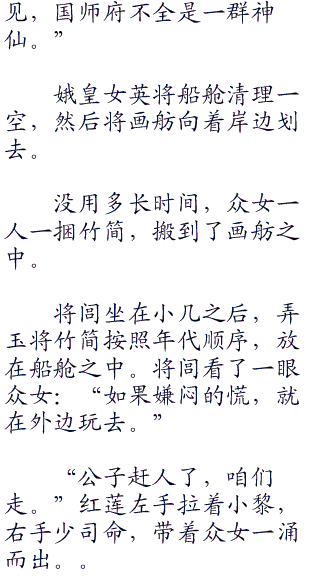 见，国师府不全是一群神
仙。”
娥皇女英将船舱清理一
空，然后将画舫向着岸边划
去。
没用多长时间，众女一
人一捆竹简，搬到了画舫之
中。
将闾坐在小几之后，弄
玉将竹简按照年代顺序，放
在船舱之中。将闾看了一眼
众女：“如果嫌闷的慌，就
在外边玩去。”
“公子赶人了，咱们
走。”红莲左手拉着小黎，
右手少司命，带着众女一涌
而出。。